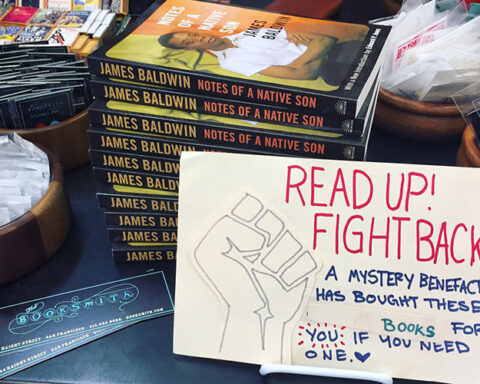 NOTES OF A NATIVE SON
JAMES BALDWIN
With a New Introduction by Edward P. Jones
JAMES BALDWIN NOTES OF A NATIVE SON
JAMES BALDWIN NOTES OF A NATIVE SON
JAMES BALDWIN NOTES OF A NATIVE SON
JAMES BALDWIN
JAMES BALDWIN
JAMES BALDWIN
JAMES BALDWIN
JAMES BALDWIN
JAMES B
READ UP!
FIGHT BACK
A MYSTERY BENEFAC
HAS BOUGHT THESE
BOOKS FOR
YOU, IF YOU NEED
ONE.
The BOOKSMITH
HAIGHT STREET SAN FRANCISCO BOOKSMITH.COM
HAIGHT STREET SAN FRANCISCO